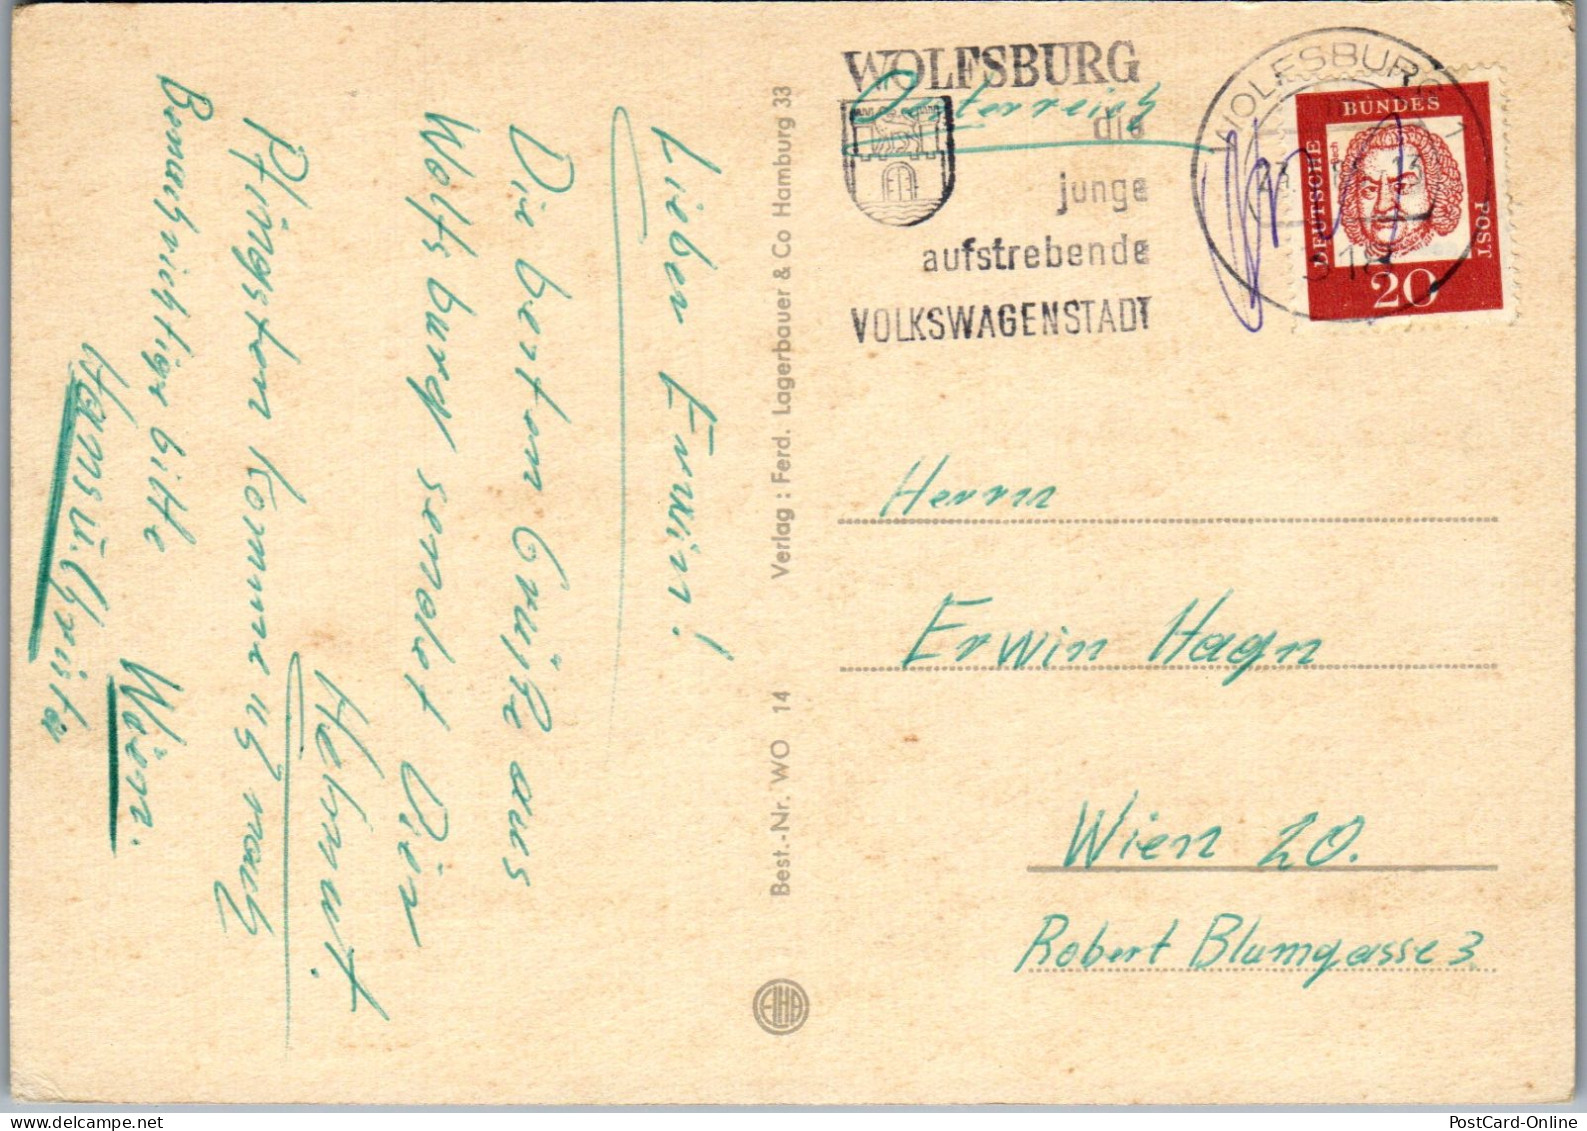 WOLFSBURG
die
junge
aufstrebende
VOLKSWAGENSTADT
Österreich
WOLFSBURG 1
318
BUNDES
DEUTSCHE
POST
20
Lieber Erwin!
Die besten Grüße aus
Wolfsburg sendet Dir
Helmut.
Pfingsten komme ich nach
Wien.
Benachrichtige bitte
Hans u. Christa
Verlag: Ferd. Lagerbauer & Co Hamburg 33
Best.-Nr. WO 14
Herrn
Erwin Hagn
Wien 20.
Robert Blumgasse 3
PostCard-Online